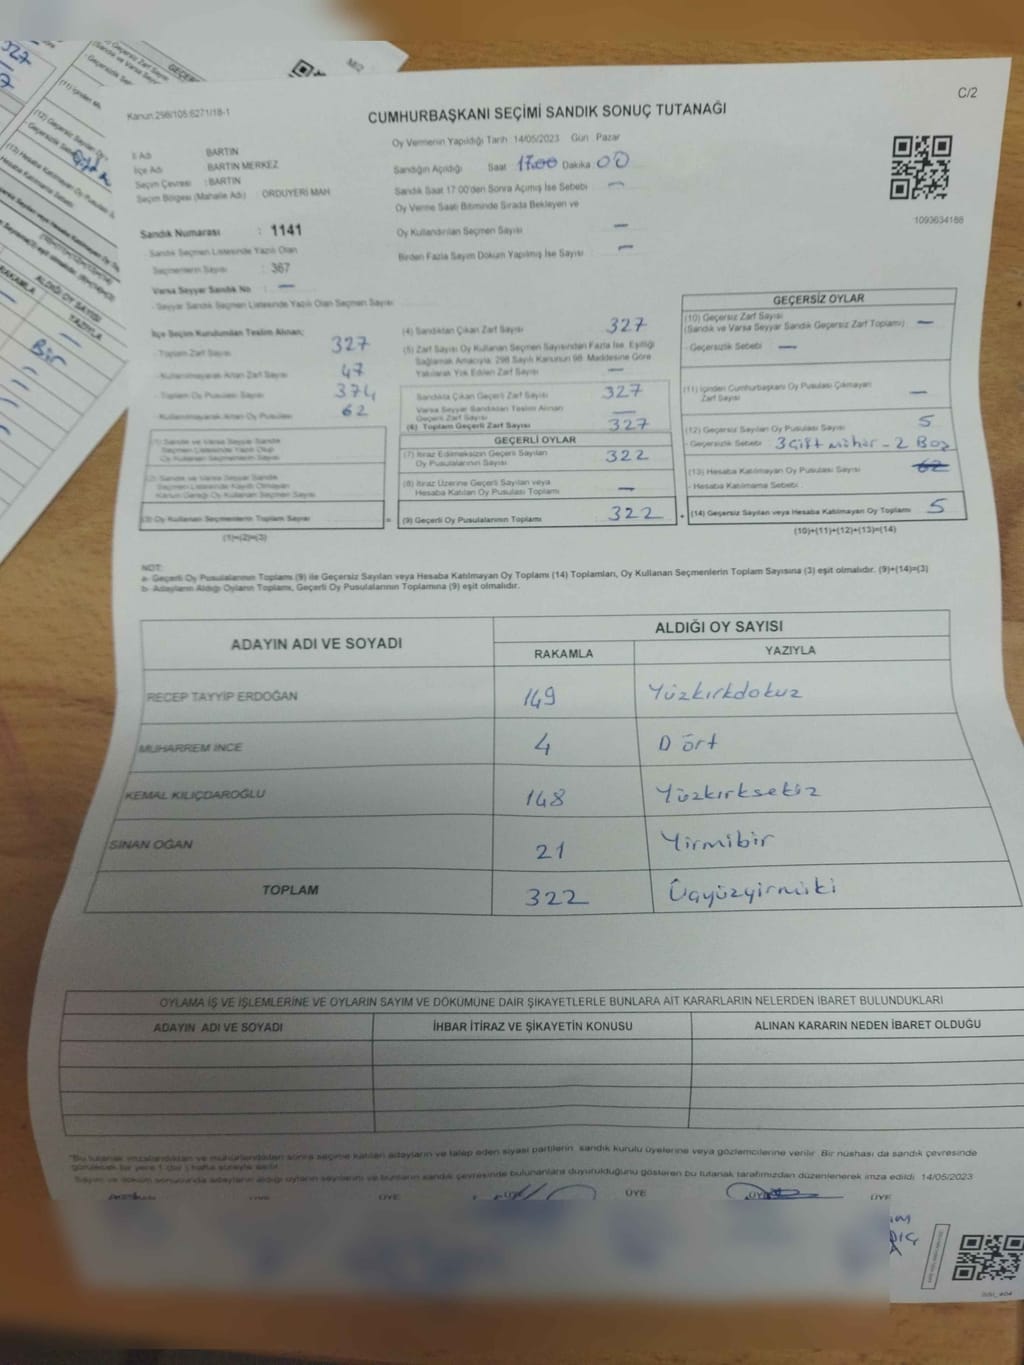 C/2
Kanun:298/105:6271/18-1
CUMHURBAŞKANI SEÇİMİ SANDIK SONUÇ TUTANAĞI
İl Adı BARTIN
İlçe Adı BARTIN MERKEZ
Seçim Çevresi : BARTIN
Seçim Bölgesi (Mahalle Adı) : ORDUYERİ MAH
Sandık Numarası : 1141
Sandık Seçmen Listesinde Yazılı Olan
Seçmenlerin Sayısı : 367
Varsa Seyyar Sandık No : —
Seyyar Sandık Seçmen Listesinde Yazılı Olan Seçmen Sayısı
Oy Vermenin Yapıldığı Tarih 14/05/2023 Gün Pazar
Sandığın Açıldığı Saat 17.00 Dakika 00
Sandık Saat 17:00'den Sonra Açımış İse Sebebi —
Oy Verme Saati Bitiminde Sırada Bekleyen ve
Oy Kullandırılan Seçmen Sayısı —
Birden Fazla Sayım Döküm Yapılmış İse Sayısı —
1093634188
İlçe Seçim Kurulundan Teslim Alınan;
Toplam Zarf Sayısı 327
Kullanılmayarak Artan Zarf Sayısı 47
Toplam Oy Pusulası Sayısı 374
Kullanılmayarak Artan Oy Pusulası 62
(1) Sandık ve Varsa Seyyar Sandık
Seçmen Listesinde Yazılı Olup
Oy Kullanan Seçmen Sayısı
(2) Sandık ve Varsa Seyyar Sandık
Seçmen Listesinde Kayıtlı Olmayan
Kanun Gereği Oy Kullanan Seçmen Sayısı
(3) Oy Kullanan Seçmenlerin Toplam Sayısı =
(1)+(2)=(3)
(4) Sandıktan Çıkan Zarf Sayısı 327
(5) Zarf Sayısı Oy Kullanan Seçmen Sayısından Fazla İse, Eşitliği
Sağlamak Amacıyla, 298 Sayılı Kanunun 98. Maddesine Göre
Yakılarak Yok Edilen Zarf Sayısı —
Sandıkta Çıkan Geçerli Zarf Sayısı 327
Varsa Seyyar Sandıktan Teslim Alınan
Geçerli Zarf Sayısı —
(6) Toplam Geçerli Zarf Sayısı 327
GEÇERLİ OYLAR
(7) İtiraz Edilmeksizin Geçerli Sayılan
Oy Pusulalarının Sayısı 322
(8) İtiraz Üzerine Geçerli Sayılan veya
Hesaba Katılan Oy Pusulası Toplamı —
(9) Geçerli Oy Pusulalarının Toplamı 322 +
GEÇERSİZ OYLAR
(10) Geçersiz Zarf Sayısı
(Sandık ve Varsa Seyyar Sandık Geçersiz Zarf Toplamı) —
- Geçersizlik Sebebi —
(11) İçinden Cumhurbaşkanı Oy Pusulası Çıkmayan
Zarf Sayısı —
(12) Geçersiz Sayılan Oy Pusulası Sayısı 5
- Geçersizlik Sebebi 3 Çift mühür - 2 Boş
(13) Hesaba Katılmayan Oy Pusulası Sayısı 62
- Hesaba Katılmama Sebebi
(14) Geçersiz Sayılan veya Hesaba Katılmayan Oy Toplamı 5
(10)+(11)+(12)+(13)=(14)
NOT:
a- Geçerli Oy Pusulalarının Toplamı (9) ile Geçersiz Sayılan veya Hesaba Katılmayan Oy Toplamı (14) Toplamları, Oy Kullanan Seçmenlerin Toplam Sayısına (3) eşit olmalıdır. (9)+(14)=(3)
b- Adayların Aldığı Oyların Toplamı, Geçerli Oy Pusulalarının Toplamına (9) eşit olmalıdır.
ADAYIN ADI VE SOYADI ALDIĞI OY SAYISI
RAKAMLA YAZIYLA
RECEP TAYYİP ERDOĞAN 149 Yüzkırkdokuz
MUHARREM İNCE 4 Dört
KEMAL KILIÇDAROĞLU 148 Yüzkırksekiz
SİNAN OĞAN 21 Yirmibir
TOPLAM 322 Üçyüzyirmiiki
OYLAMA İŞ VE İŞLEMLERİNE VE OYLARIN SAYIM VE DÖKÜMÜNE DAİR ŞİKAYETLERLE BUNLARA AİT KARARLARIN NELERDEN İBARET BULUNDUKLARI
ADAYIN ADI VE SOYADI İHBAR İTİRAZ VE ŞİKAYETİN KONUSU ALINAN KARARIN NEDEN İBARET OLDUĞU
"Bu tutanak imzalandıktan ve mühürlendikten sonra seçime katılan adayların ve talep eden siyasi partilerin sandık kurulu üyelerine veya gözlemcilerine verilir. Bir nüshası da sandık çevresinde
görülecek bir yere 1 (bir) hafta süreyle asılır.
Sayım ve döküm sonucunda adayların aldığı oyların sayılarını ve bunların sandık çevresinde bulunanlara duyurulduğunu gösteren bu tutanak tarafımızdan düzenlenerek imza edildi. 14/05/2023
ÜYE ÜYE ÜYE ÜYE ÜYE ÜYE